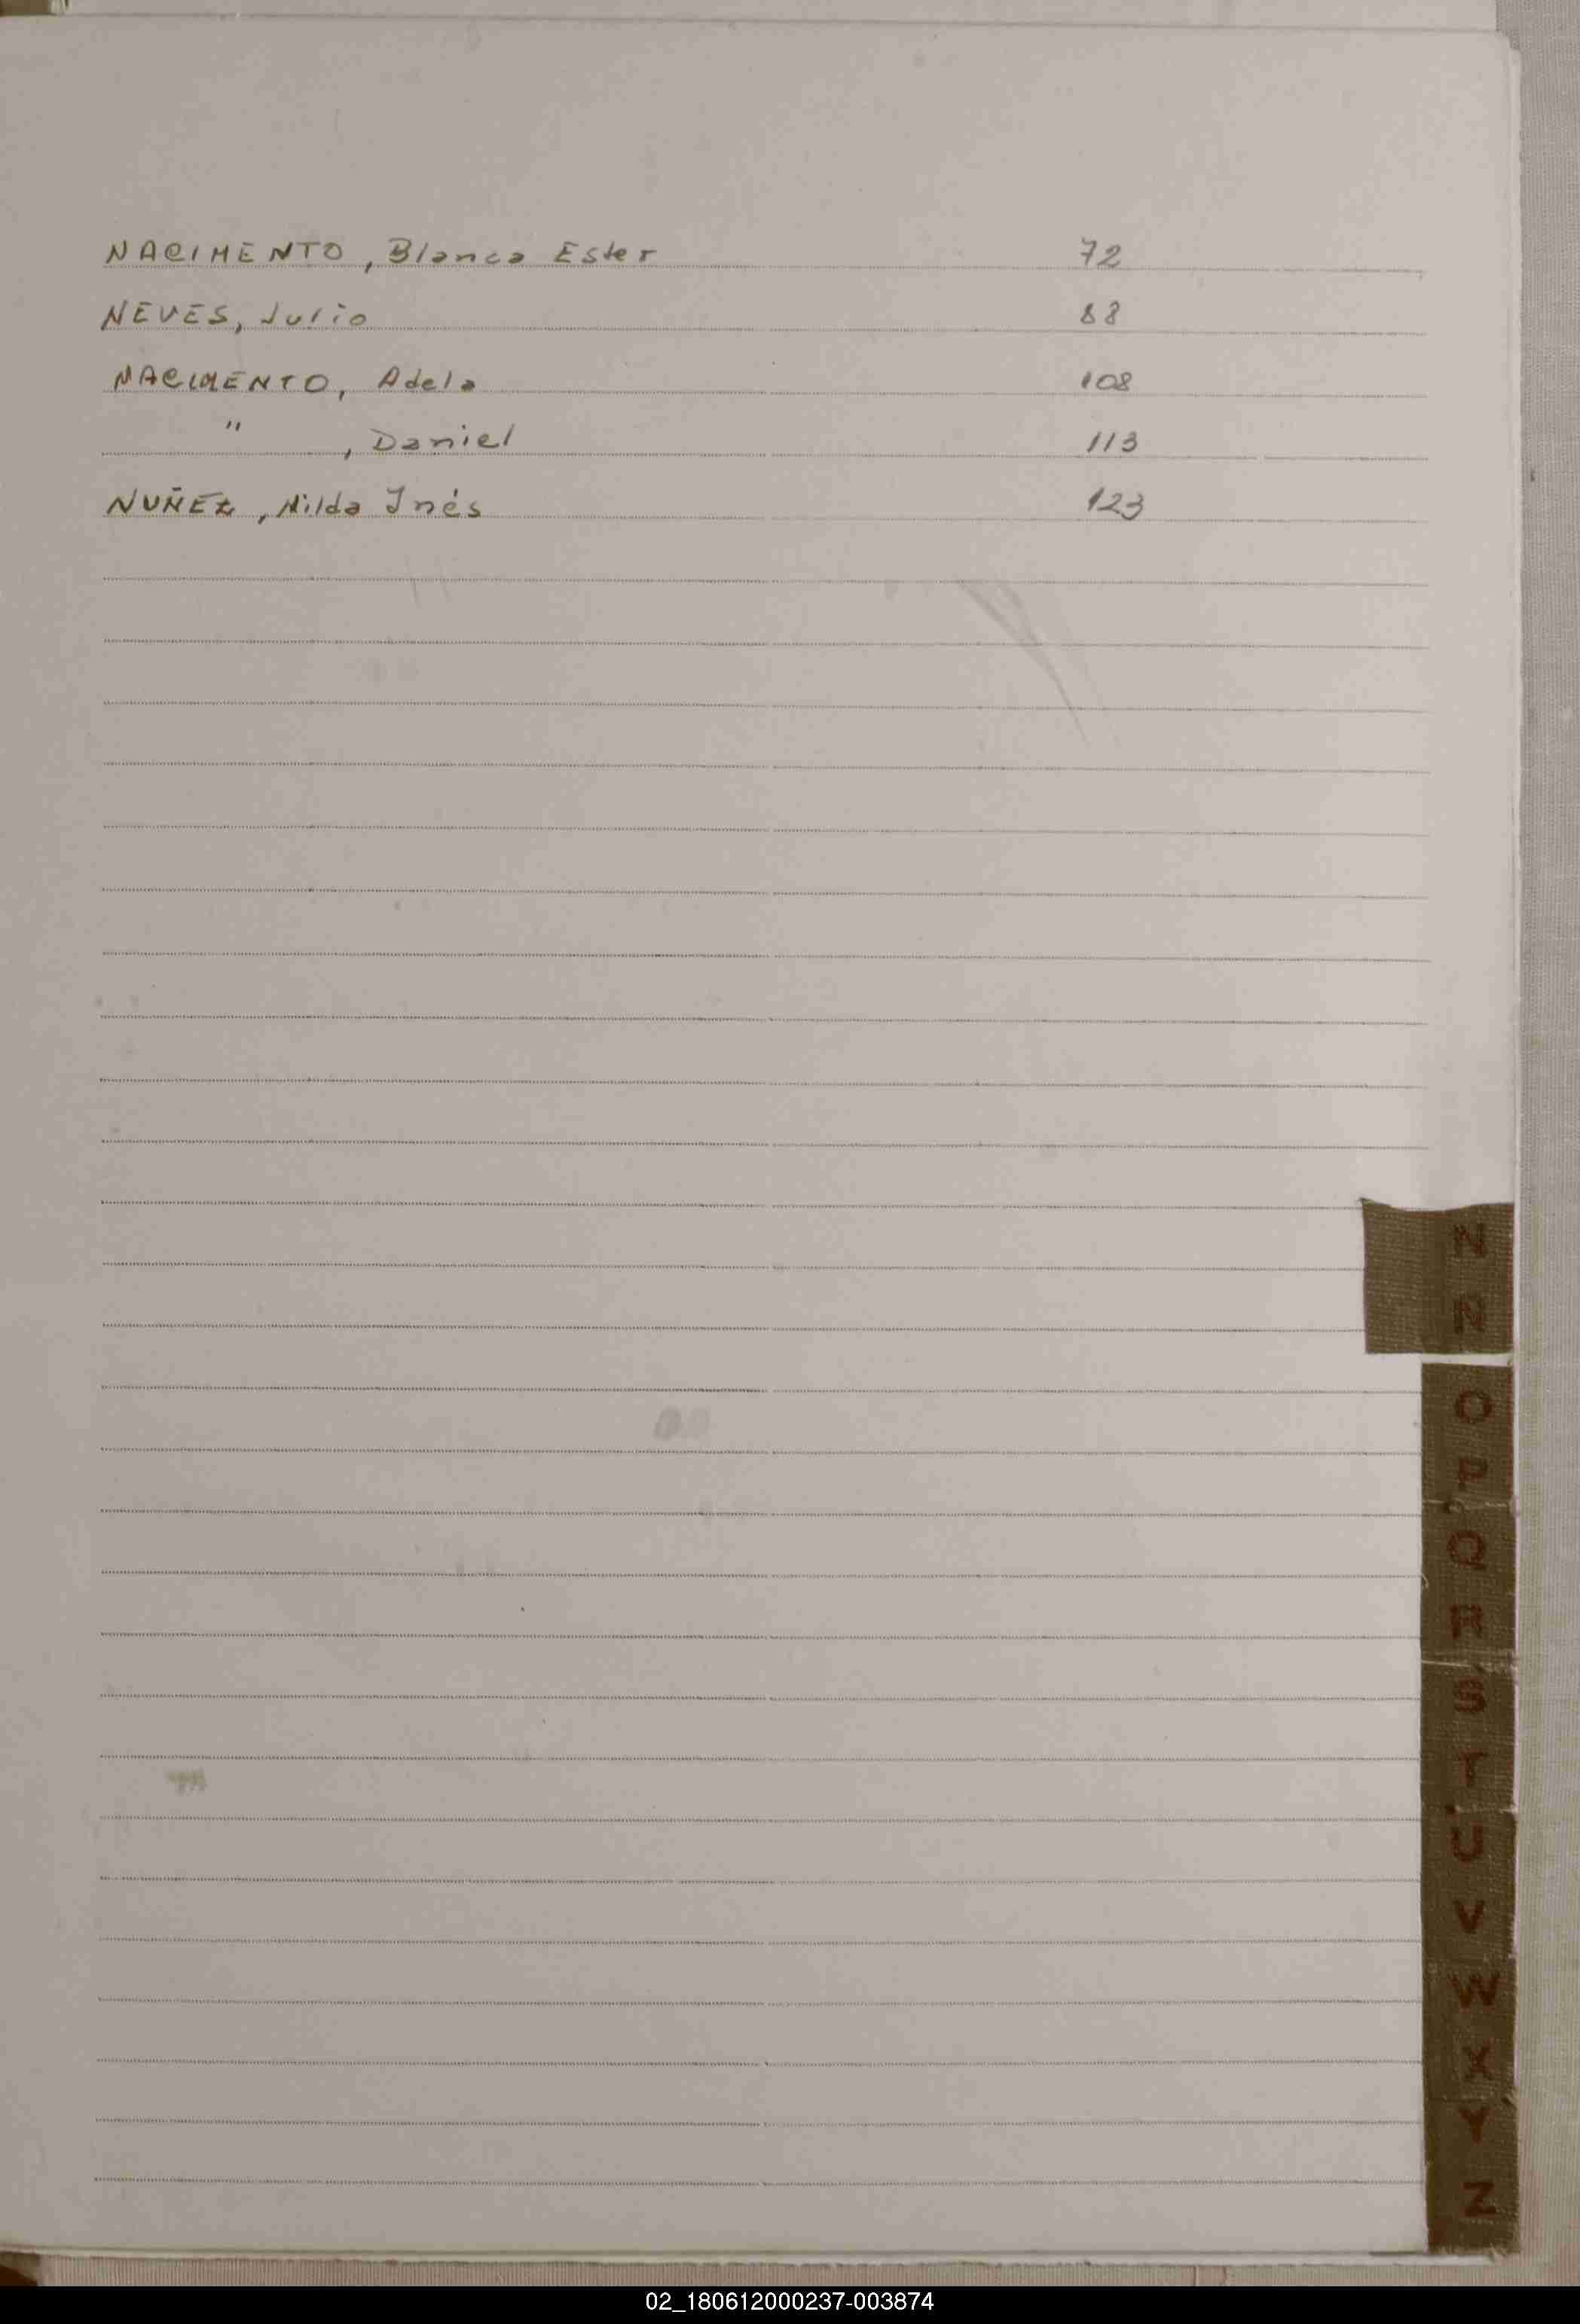 NACIMENTO, Blanca Ester 72
NEVES, Julio 88
NACIMENTO, Adela 108
" , Daniel 113
NUÑEZ, Hilda Inés 123
N
Ñ
O
P
Q
R
S
T
U
V
W
X
Y
Z
02_180612000237-003874